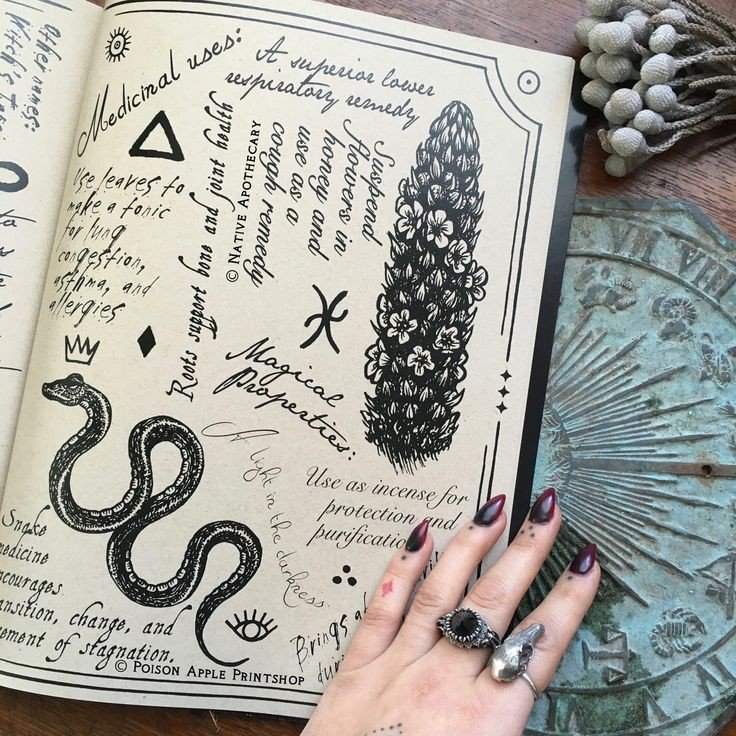 Other names:
Witch's
Medicinal uses:
A superior lower
respiratory remedy
Use leaves to
make a tonic
for lung
congestion,
asthma, and
allergies
Roots support bone and joint health
© NATIVE APOTHECARY
Suspend
flowers in
honey and
use as a
cough remedy
Magical
Properties:
A light in the darkness
Use as incense for
protection and
purificatio
Snake
medicine
ncourages
ansition, change, and
ement of stagnation.
Brings
© POISON APPLE PRINTSHOP
VI
VII
VIII